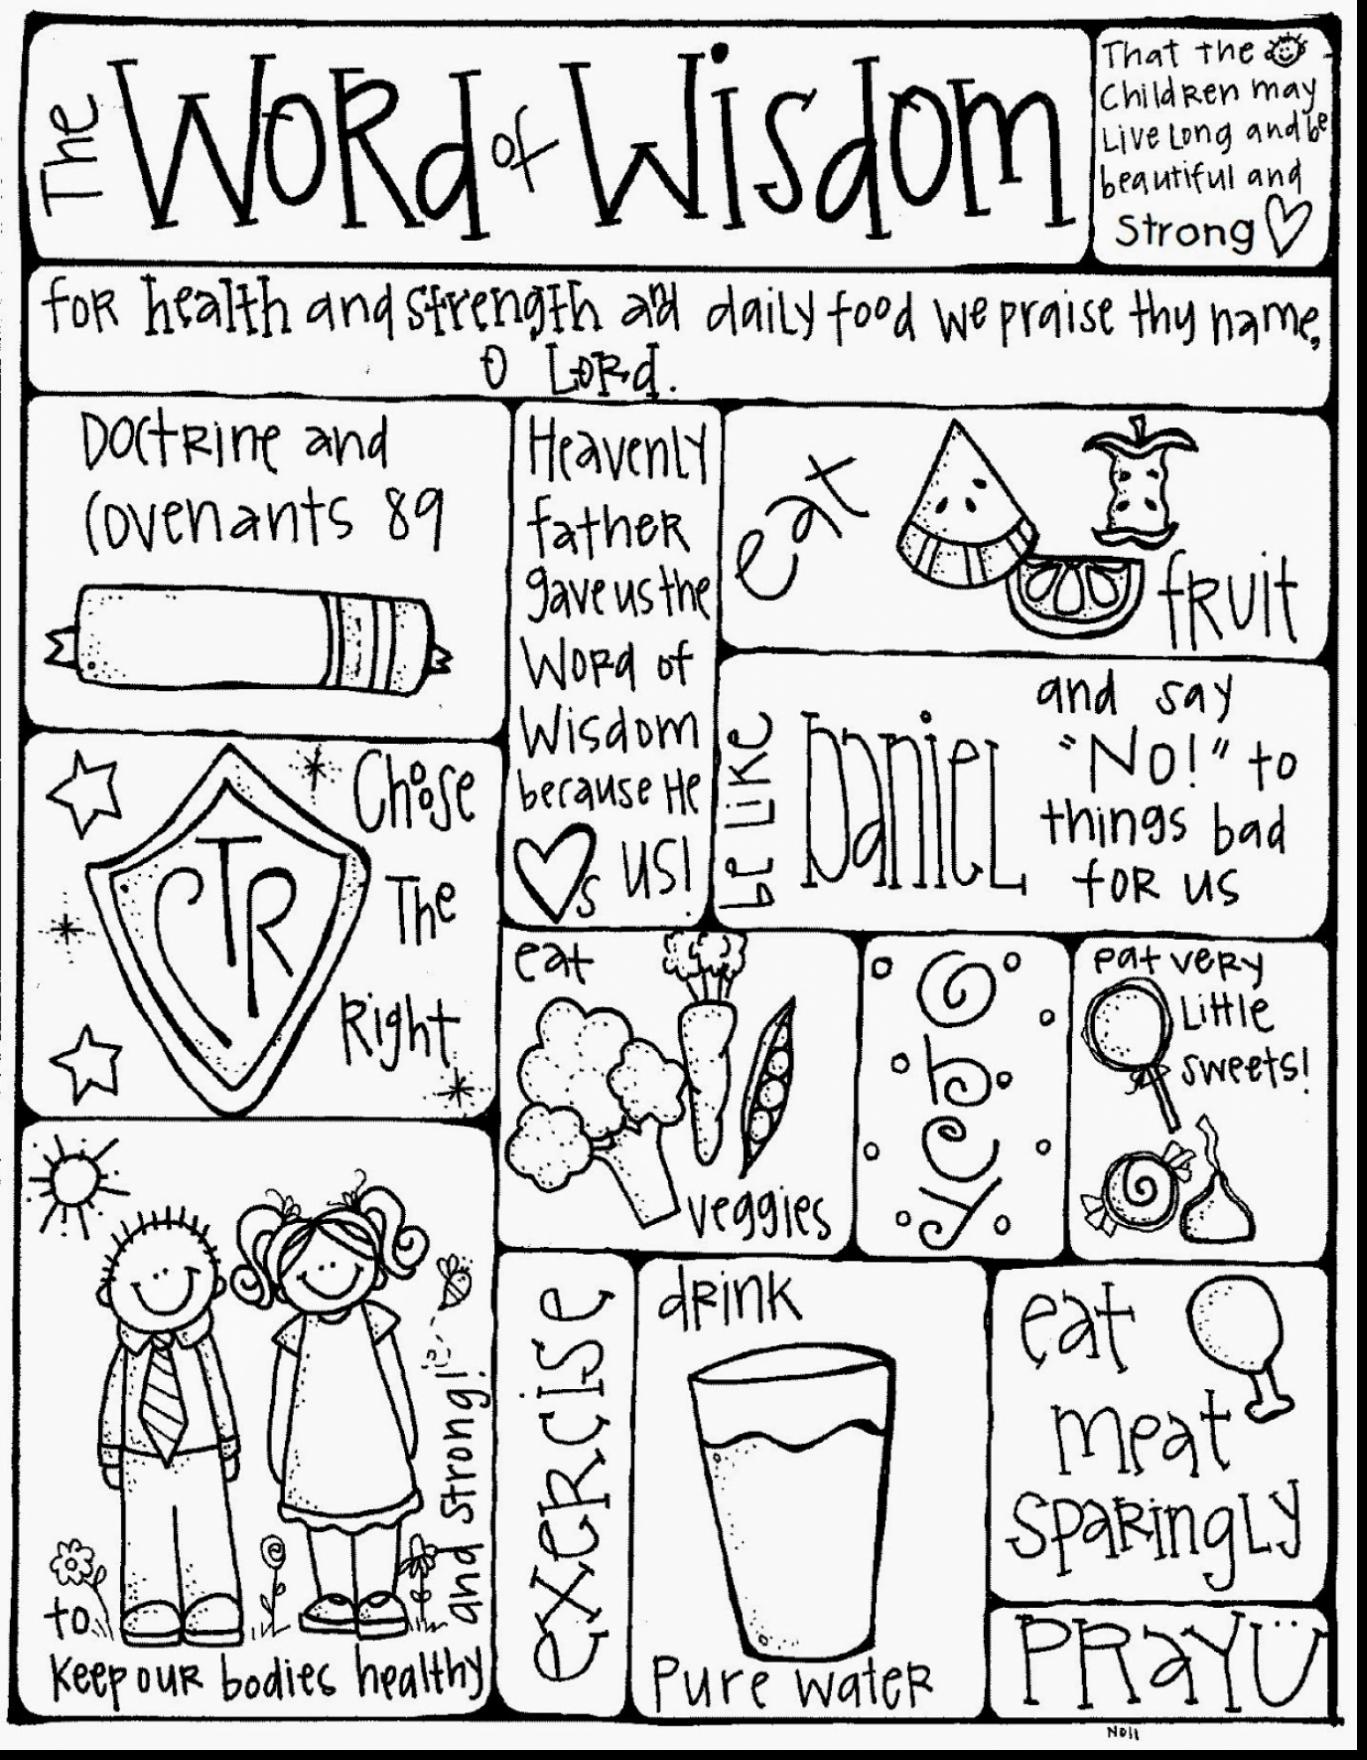 The Word of Wisdom
That the
Children may
Live Long and be
beautiful and
Strong
for health and strength and daily food we praise thy name,
O Lord.
Doctrine and
Covenants 89
Heavenly
father
gave us the
Word of
Wisdom
because He
s us!
eat
fruit
be like Daniel
and say
"No!" to
things bad
for us
Choose
The
Right
CTR
eat
veggies
eat very
Little
sweets!
to
Keep our bodies healthy
and strong!
exercise
drink
Pure water
eat
meat
sparingly
PRAY